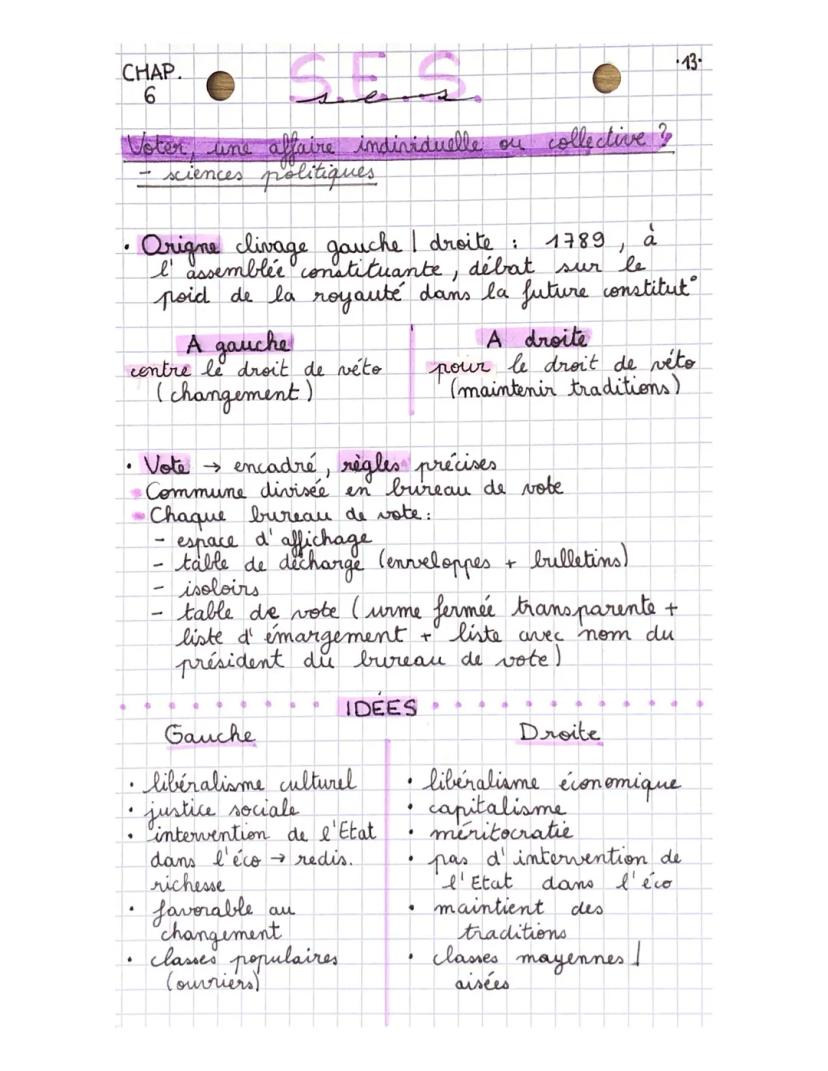 CHAP.
6
S.E.S.
ses
·13·
Voter, une affaire individuelle ou collective ?
- sciences politiques
• Origne clivage gauche | droite : 1789, à
l'assemblée constituante, débat sur le
poid de la royauté dans la future constitut°
A gauche
contre le droit de véto
(changement)
A droite
pour le droit de véto
(maintenir traditions)
• Vote → encadré, règles précises
• Commune divisée en bureau de vote
• Chaque bureau de vote :
- espace d'affichage
- table de décharge (enveloppes + bulletins)
- isoloirs
- table de vote (urme fermée transparente +
liste d'émargement + liste avec nom du
président du bureau de vote)
IDÉES
Gauche
• libéralisme culturel
• justice sociale
• intervention de l'Etat
dans l'éco → redis.
richesse
• favorable au
changement
• classes populaires
(ouvriers)
Droite
• libéralisme économique
• capitalisme
• méritocratie
• pas d'intervention de
l'Etat dans l'éco
• maintient des
traditions
• classes mayennes |
aisées